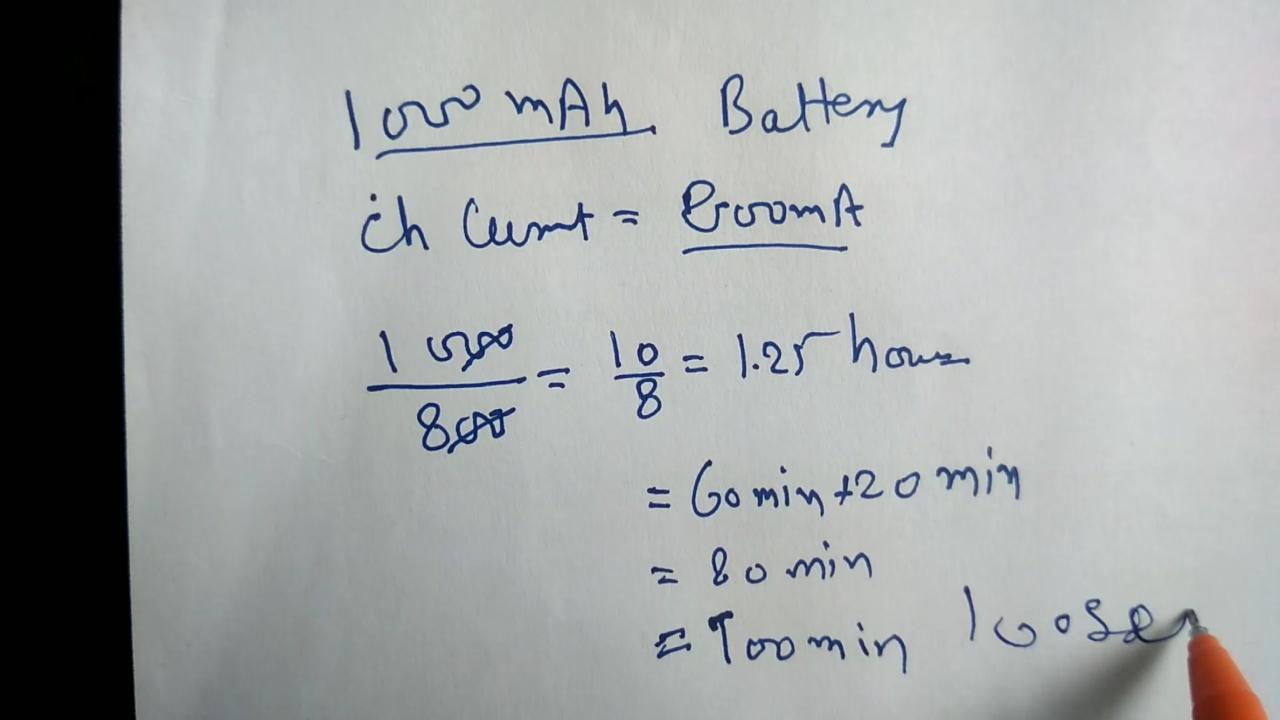 1000 mAh Battery
ich Current = 800mA
1000/800 = 10/8 = 1.25 hours
= 60 min + 20 min
= 80 min
= 100 min 100